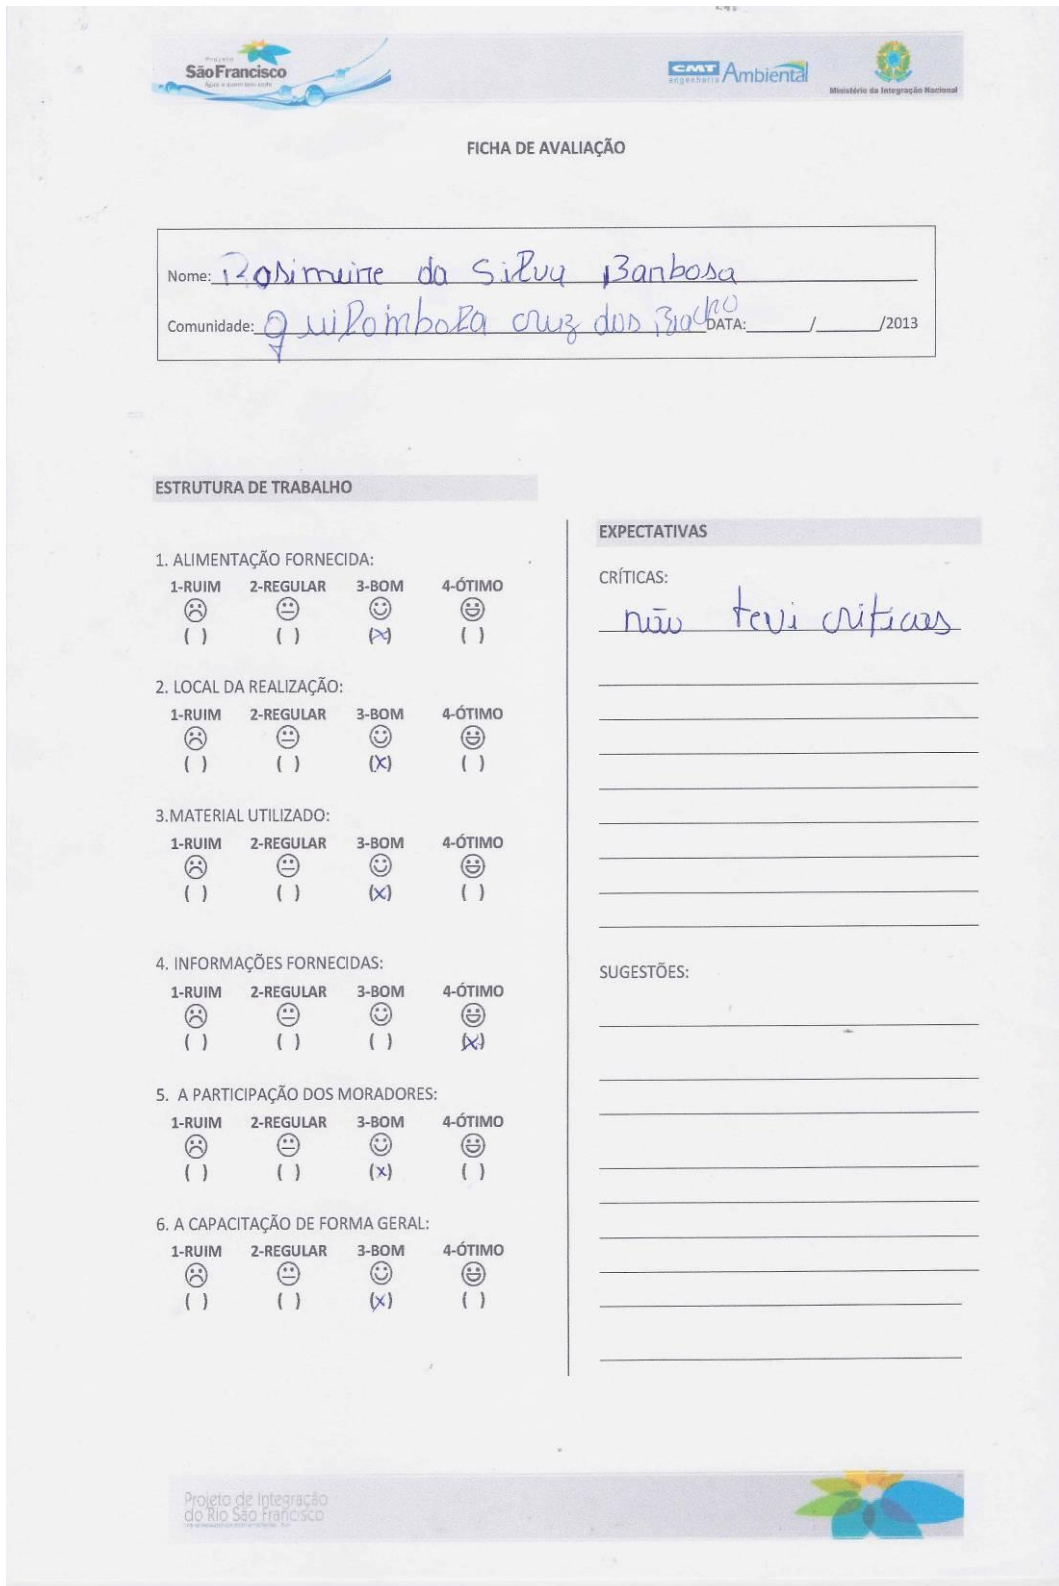 Projeto
São Francisco
CMT Ambiental
engenharia
Ministério da Integração Nacional
FICHA DE AVALIAÇÃO
Nome: Rosimeire da Silva Barbosa
Comunidade: quilombola cruz dos Riacho DATA:______/______/2013
ESTRUTURA DE TRABALHO
1. ALIMENTAÇÃO FORNECIDA:
1-RUIM 2-REGULAR 3-BOM 4-ÓTIMO
( ) ( ) (x) ( )
2. LOCAL DA REALIZAÇÃO:
1-RUIM 2-REGULAR 3-BOM 4-ÓTIMO
( ) ( ) (x) ( )
3.MATERIAL UTILIZADO:
1-RUIM 2-REGULAR 3-BOM 4-ÓTIMO
( ) ( ) (x) ( )
4. INFORMAÇÕES FORNECIDAS:
1-RUIM 2-REGULAR 3-BOM 4-ÓTIMO
( ) ( ) ( ) (x)
5. A PARTICIPAÇÃO DOS MORADORES:
1-RUIM 2-REGULAR 3-BOM 4-ÓTIMO
( ) ( ) (x) ( )
6. A CAPACITAÇÃO DE FORMA GERAL:
1-RUIM 2-REGULAR 3-BOM 4-ÓTIMO
( ) ( ) (x) ( )
EXPECTATIVAS
CRÍTICAS:
não tevi criticas
SUGESTÕES:
Projeto de Integração
do Rio São Francisco